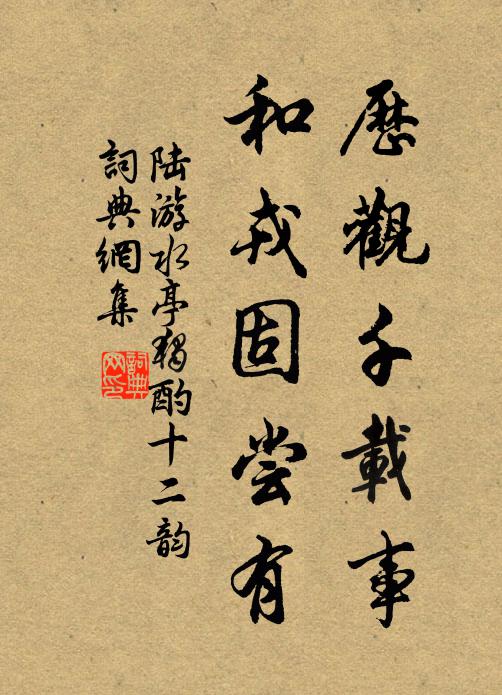 歷觀千載事
和戎固嘗有
陆游水亭獨酌十二韵
詞典網集
詞典网印